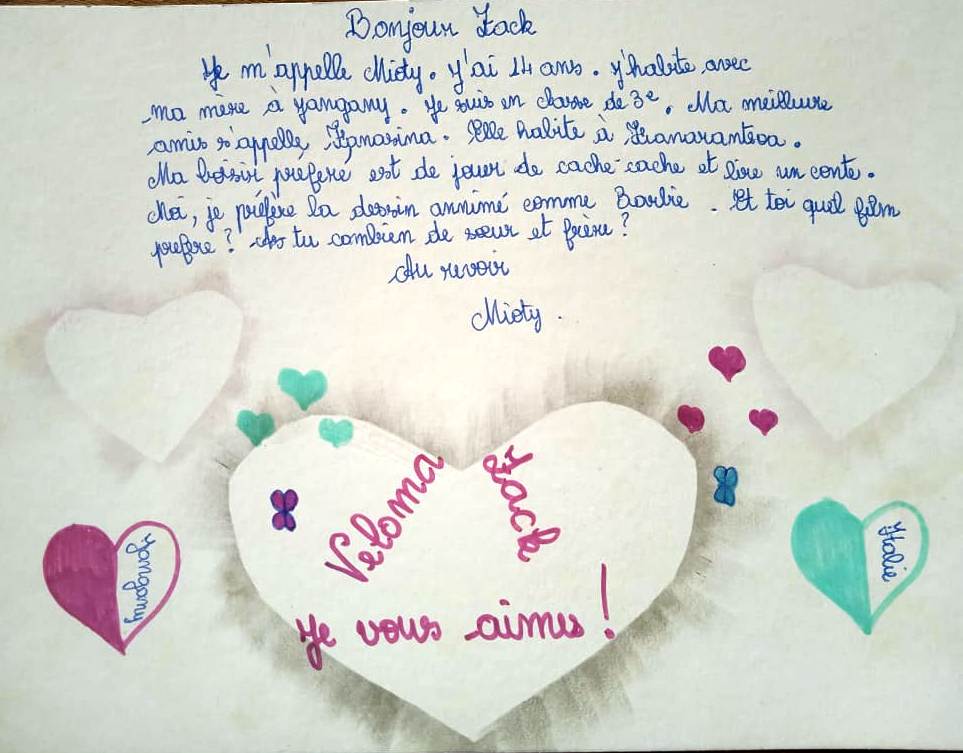 Bonjour Zack
Je m'appelle Mioty. J'ai 14 ans. J'habite avec
ma mère à Yangany. Je suis en classe de 3e. Ma meilleure
amis s'appelle, Elle habite à
Ma loisir préféré est de jouer de cache-cache et lire un conte.
Moi, je préfère la dessin annimé comme Barbie. Et toi quel film
prefère? As tu combien de sœur et frère?
Au revoir
Mioty.
Veloma Zack
Je vous aimes!
Yangany
Italie